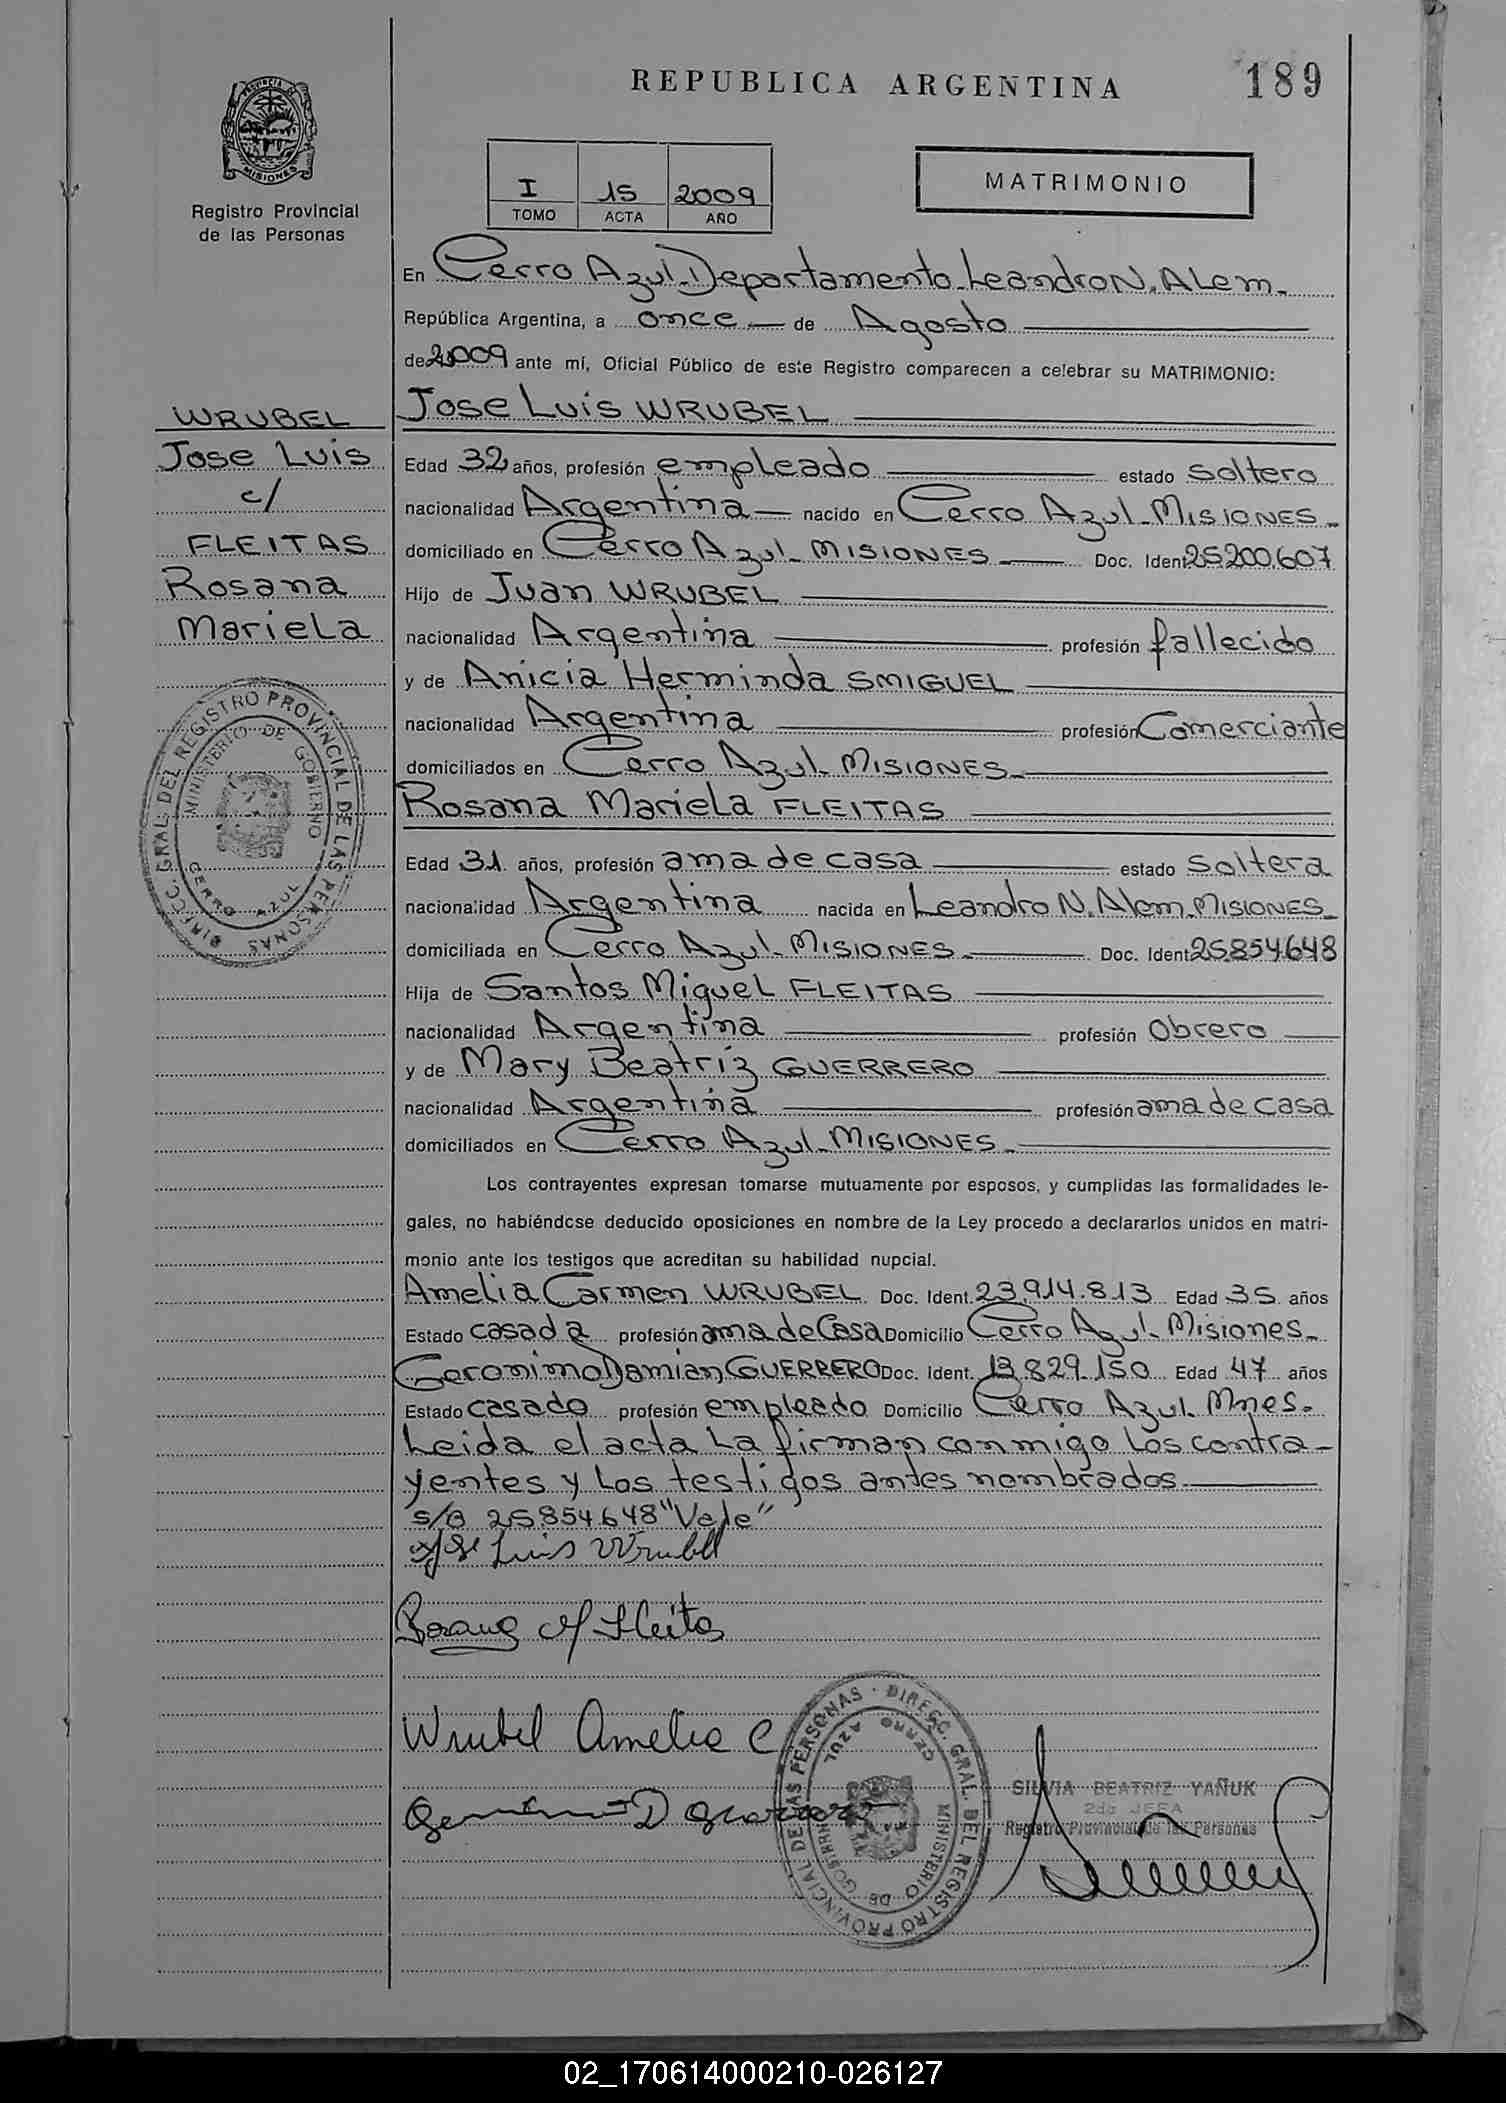 REPUBLICA ARGENTINA
189
PROVINCIA DE
MISIONES
Registro Provincial
de las Personas
I 15 2009
TOMO ACTA AÑO
MATRIMONIO
En Cerro Azul-Departamento-Leandro N. Alem-
República Argentina, a once de Agosto
de 2009 ante mí, Oficial Público de este Registro comparecen a celebrar su MATRIMONIO:
Jose Luis WRUBEL
WRUBEL
Jose Luis
c/
FLEITAS
Rosana
Mariela
Edad 32 años, profesión empleado estado soltero
nacionalidad Argentina nacido en Cerro Azul-MISIONES-
domiciliado en Cerro Azul-MISIONES- Doc. Ident 25.200.607
Hijo de Juan WRUBEL
nacionalidad Argentina profesión fallecido
y de Anicia Herminda SMIGUEL
nacionalidad Argentina profesión Comerciante
domiciliados en Cerro Azul-MISIONES-
Rosana Mariela FLEITAS
Edad 31 años, profesión ama de casa estado soltera
nacionalidad Argentina nacida en Leandro N. Alem-MISIONES-
domiciliada en Cerro Azul-MISIONES- Doc. Ident 25.854.648
Hija de Santos Miguel FLEITAS
nacionalidad Argentina profesión Obrero
y de Mary Beatriz GUERRERO
nacionalidad Argentina profesión ama de casa
domiciliados en Cerro Azul-MISIONES-
Los contrayentes expresan tomarse mutuamente por esposos, y cumplidas las formalidades le-
gales, no habiéndose deducido oposiciones en nombre de la Ley procedo a declararlos unidos en matri-
monio ante los testigos que acreditan su habilidad nupcial.
Amelia Carmen WRUBEL Doc. Ident. 23.914.813 Edad 35 años
Estado casada profesión ama de Casa Domicilio Cerro Azul-Misiones-
Geronimo Damian GUERRERO Doc. Ident. 13.829.150 Edad 47 años
Estado casado profesión empleado Domicilio Cerro Azul-Mnes-
Leida el acta La firman conmigo los contra-
yentes y los testigos antes nombrados
s/B 25854648 "Vale"
Jose Luis Wrubel
Rosana M Fleitas
Wrubel Amelia C
Geronimo D Guerrero
DIRECC. GRAL. DEL REGISTRO PROVINCIAL DE LAS PERSONAS
MINISTERIO DE GOBIERNO
CERRO AZUL
DIRECC. GRAL. DEL REGISTRO PROVINCIAL DE LAS PERSONAS
MINISTERIO DE GOBIERNO
CERRO AZUL
SILVIA BEATRIZ YAÑUK
2da JEFA
Registro Provincial de las Personas
02_170614000210-026127